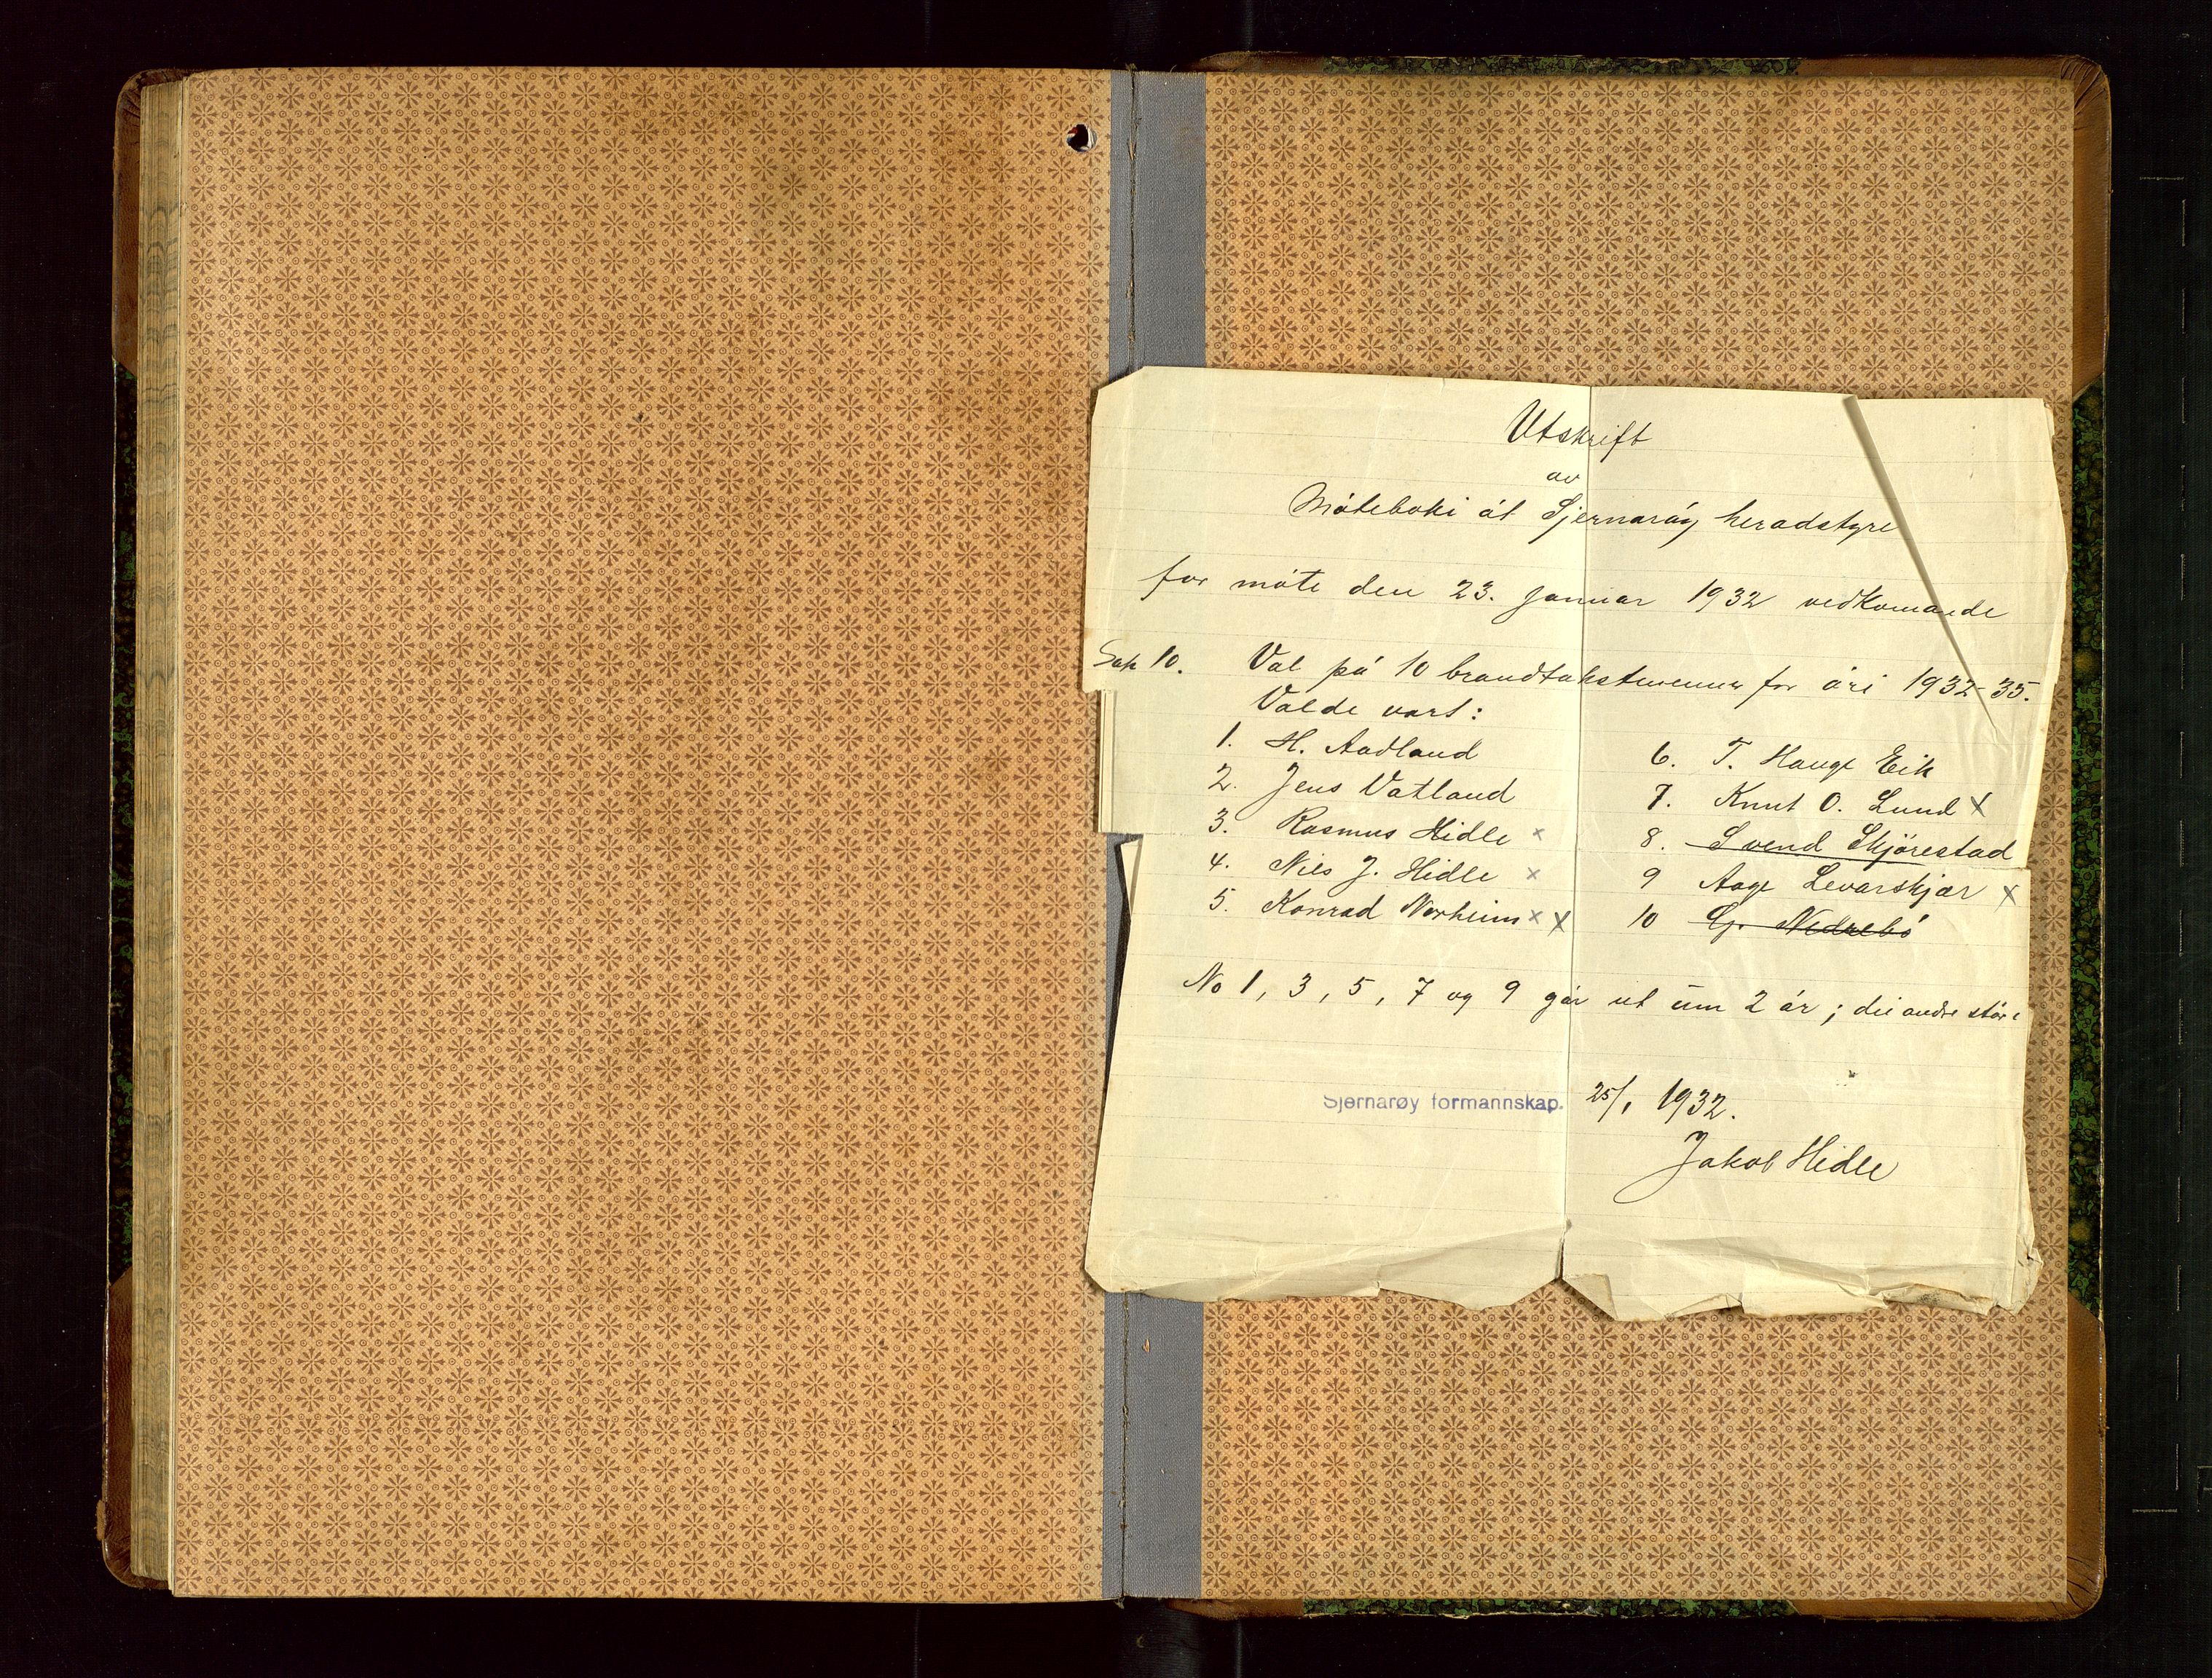 Utskrift
av
Móteboki åt Sjernaróy heradstyre
for móte den 23. januar 1932 vedkomande
Sak 10. Val på 10 brandtakstmenner for åri 1932-35.
Valde vart:
1. H. Aadland
2. Jens Vatland
3. Rasmus Hidle x
4. Nils J. Hidle x
5. Konrad Norheim x x
6. T. Hauge Eik
7. Knut O. Lund x
8. Svend Skjórestad
9 Aage Levarskjær x
10 Nedrebó
No 1, 3, 5, 7 og 9 går ut um 2 år; dei andre
Sjernarøy formannskap. 25/1 1932.
Jakob Hidle